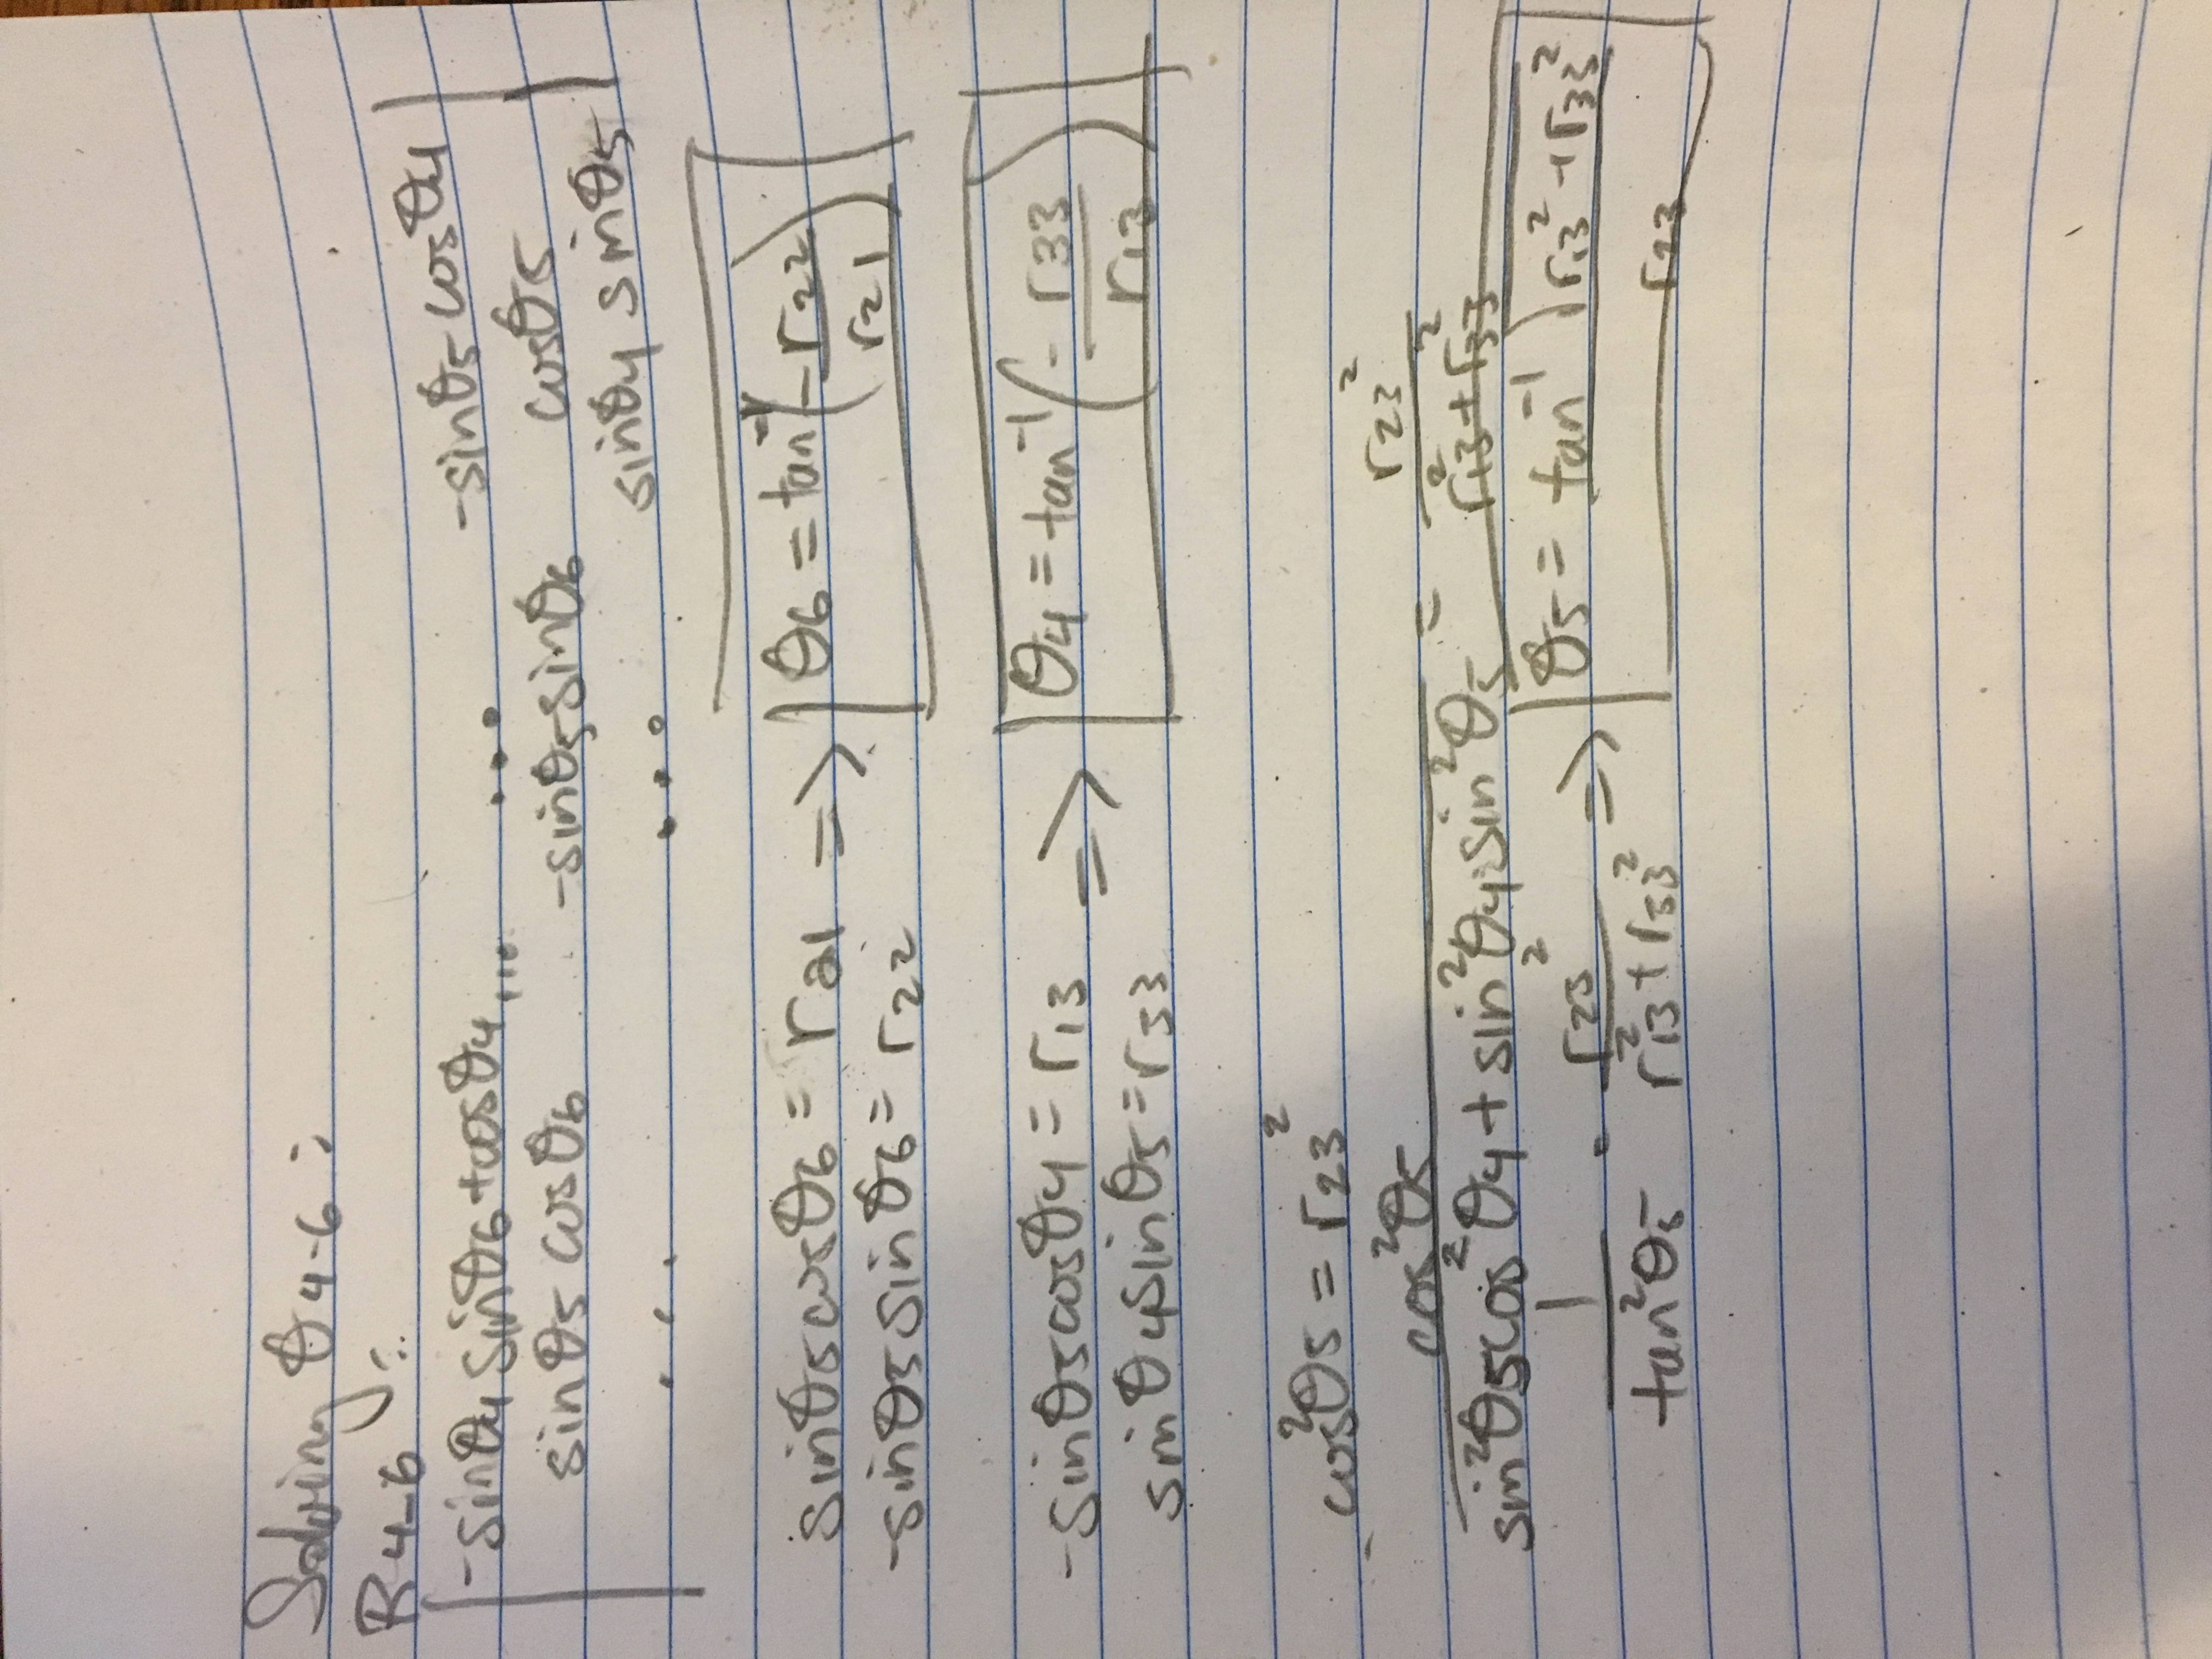 Solving θ4-6 :
R4-6 :
-sinθ4 sinθ6 + cosθ4... ... -sinθ5 cosθ4
sinθ5 cosθ6 -sinθ5 sinθ6 cosθ5
... ... sinθ4 sinθ5
sinθ5 cosθ6 = r21 => θ6 = tan⁻¹(-r22/r21)
-sinθ5 sinθ6 = r22
-sinθ5 cosθ4 = r13 => θ4 = tan⁻¹(-r33/r13)
sinθ4 sinθ5 = r33
cos²θ5 = r23²
cos²θ5/(sin²θ5 cos²θ4 + sin²θ4 sin²θ5) = r23²/(r13² + r33²)
1/tan²θ5 = r23²/(r13² + r33²) => θ5 = tan⁻¹ √(r13² + r33²)/r23